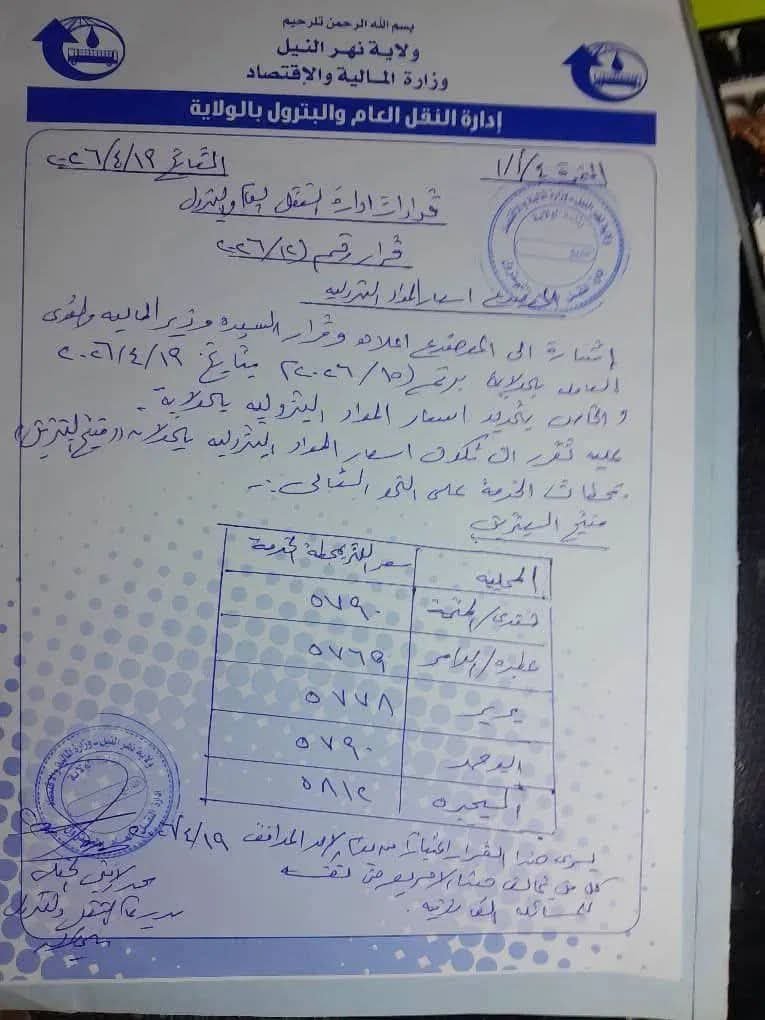 بسم الله الرحمن الرحيم
ولاية نهر النيل
وزارة المالية والإقتصاد
إدارة النقل العام والبترول بالولاية
النمرة ٤/أ/١
التاريخ ٢٠٢٦/٤/١٩
قرارات ادارة النقل العام والبترول
قرار رقم (٢٠٢٦/١٢)
الموضوع اسعار المواد البترولية
إشارة الى الموضوع اعلاه وقرار السيد وزير المالية والقوى
العاملة بالولاية برقم (٢٠٢٦/١٥) بتاريخ ٢٠٢٦/٤/١٩
والخاص بتحديد اسعار المواد البترولية بالولاية.
عليه تقرر ان تكون اسعار المواد البترولية بالولاية (منتج البنزين)
بمحطات الخدمة على النحو التالى :-
منتج البنزين
المحلية سعر اللتر بمحطة الخدمة
شندى/المتمة ٥٧٩٠
عطبرة/الدامر ٥٧٦٩
بربر ٥٧٧٨
ابوحمد ٥٧٩٠
البحيره ٥٨١٢
يسرى هذا القرار اعتباراً من يوم الاحد الموافق ٤/١٩
كل من يخالف هذا الامر يعرض نفسه
للمسائلة القانونيه.
مدير عام النقل والبترول